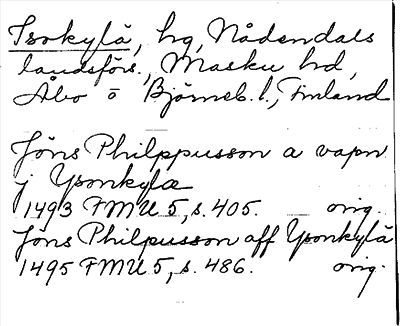 Isokylä, hg, Nådendals
landsförs., Masku hd,
Åbo o Björneb. l., Finland
Jöns Philppusson a vapn
j Ysonkylæ
1493 FMU 5, s. 405. orig.
Jöns Philpusson aff Ysonkylä
1495 FMU 5, s. 486. orig.